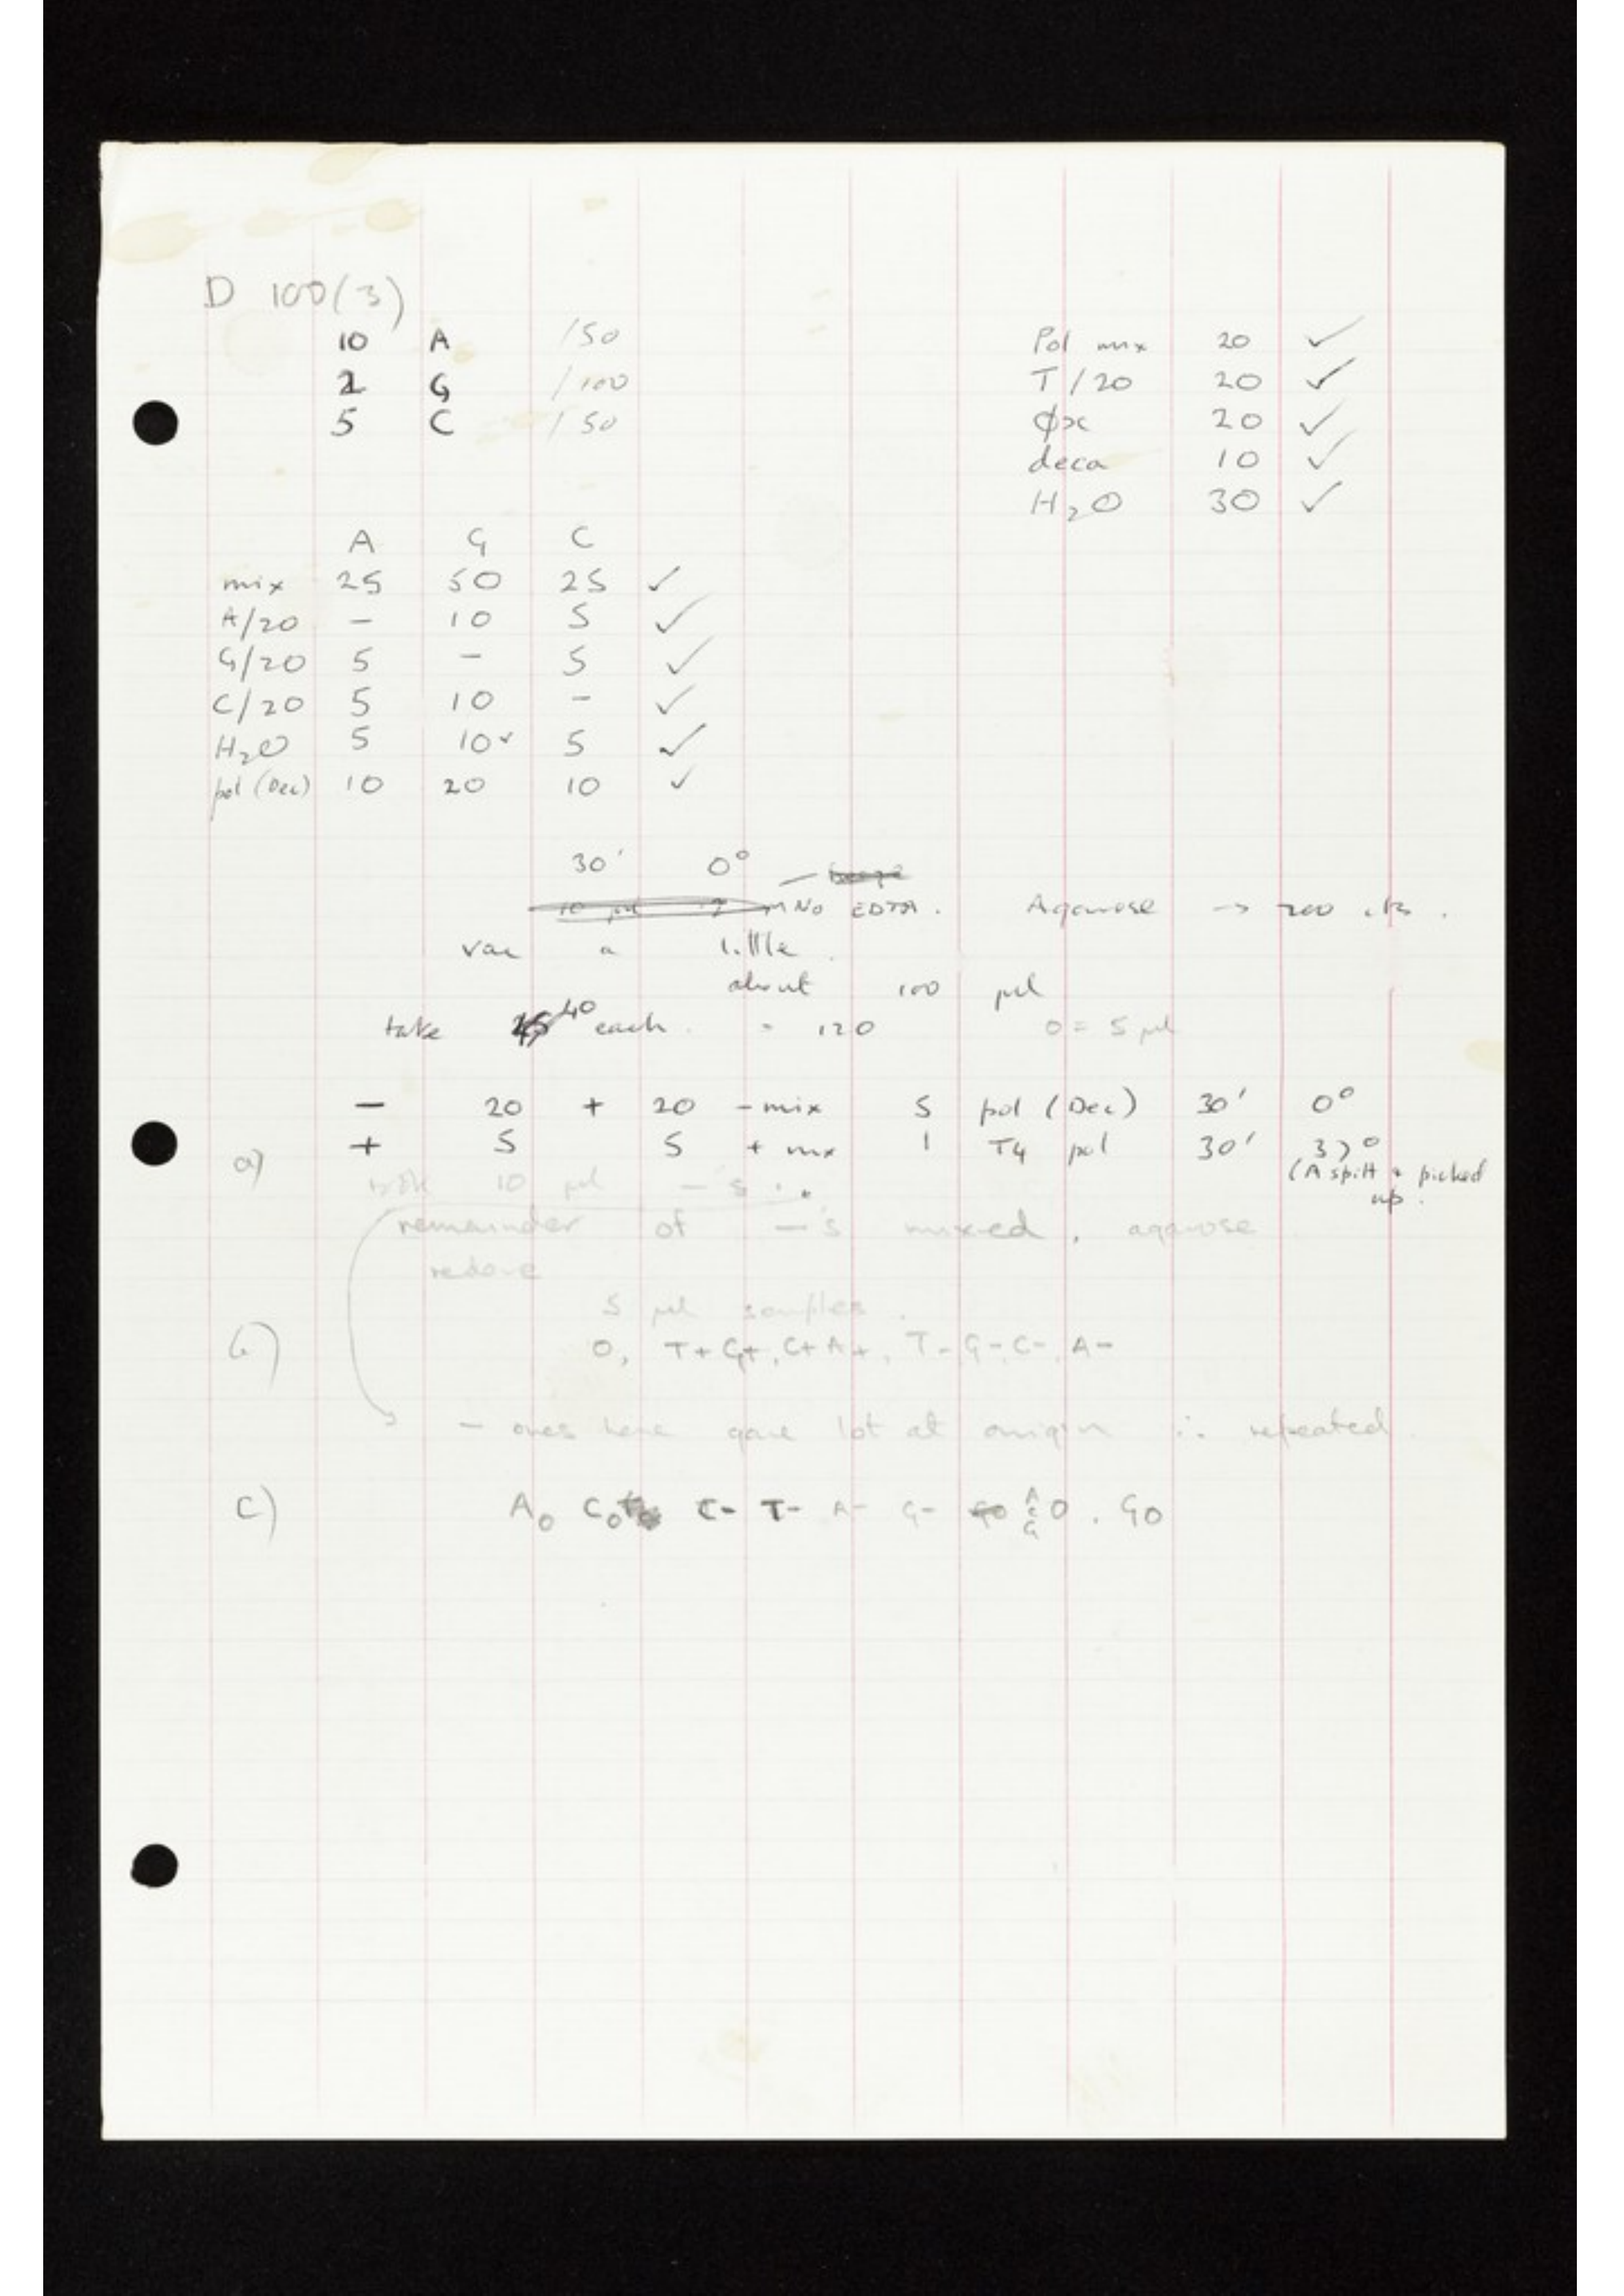 D 100(3)
10 A /50
2 G /100
5 C /50
Pol mix 20 ✓
T/20 20 ✓
ϕx 20 ✓
deca 10 ✓
H₂O 30 ✓
A G C
mix 25 50 25 ✓
A/20 – 10 5 ✓
G/20 5 – 5 ✓
C/20 5 10 – ✓
H₂O 5 10✓ 5 ✓
pol (Dec) 10 20 10 ✓
30' 0°
No EDTA. Agarose → 200
vac a little.
about 100 μl
take 40 each. = 120 0 = 5 μl
– 20 + 20 - mix 5 pol (Dec) 30' 0°
+ 5 5 + mix 1 T4 pol 30' 37°
(A spilt + picked up.
a) took 10 μl –'s
remainder of –'s mixed, agarose
redone
5 μl samples.
b) 0, T+ G+, C+ A+, T-, G-, C-, A-
– ones here gave lot at origin ∴ repeated.
c) A₀ C₀ C- T- A- G- A C G 0. G0